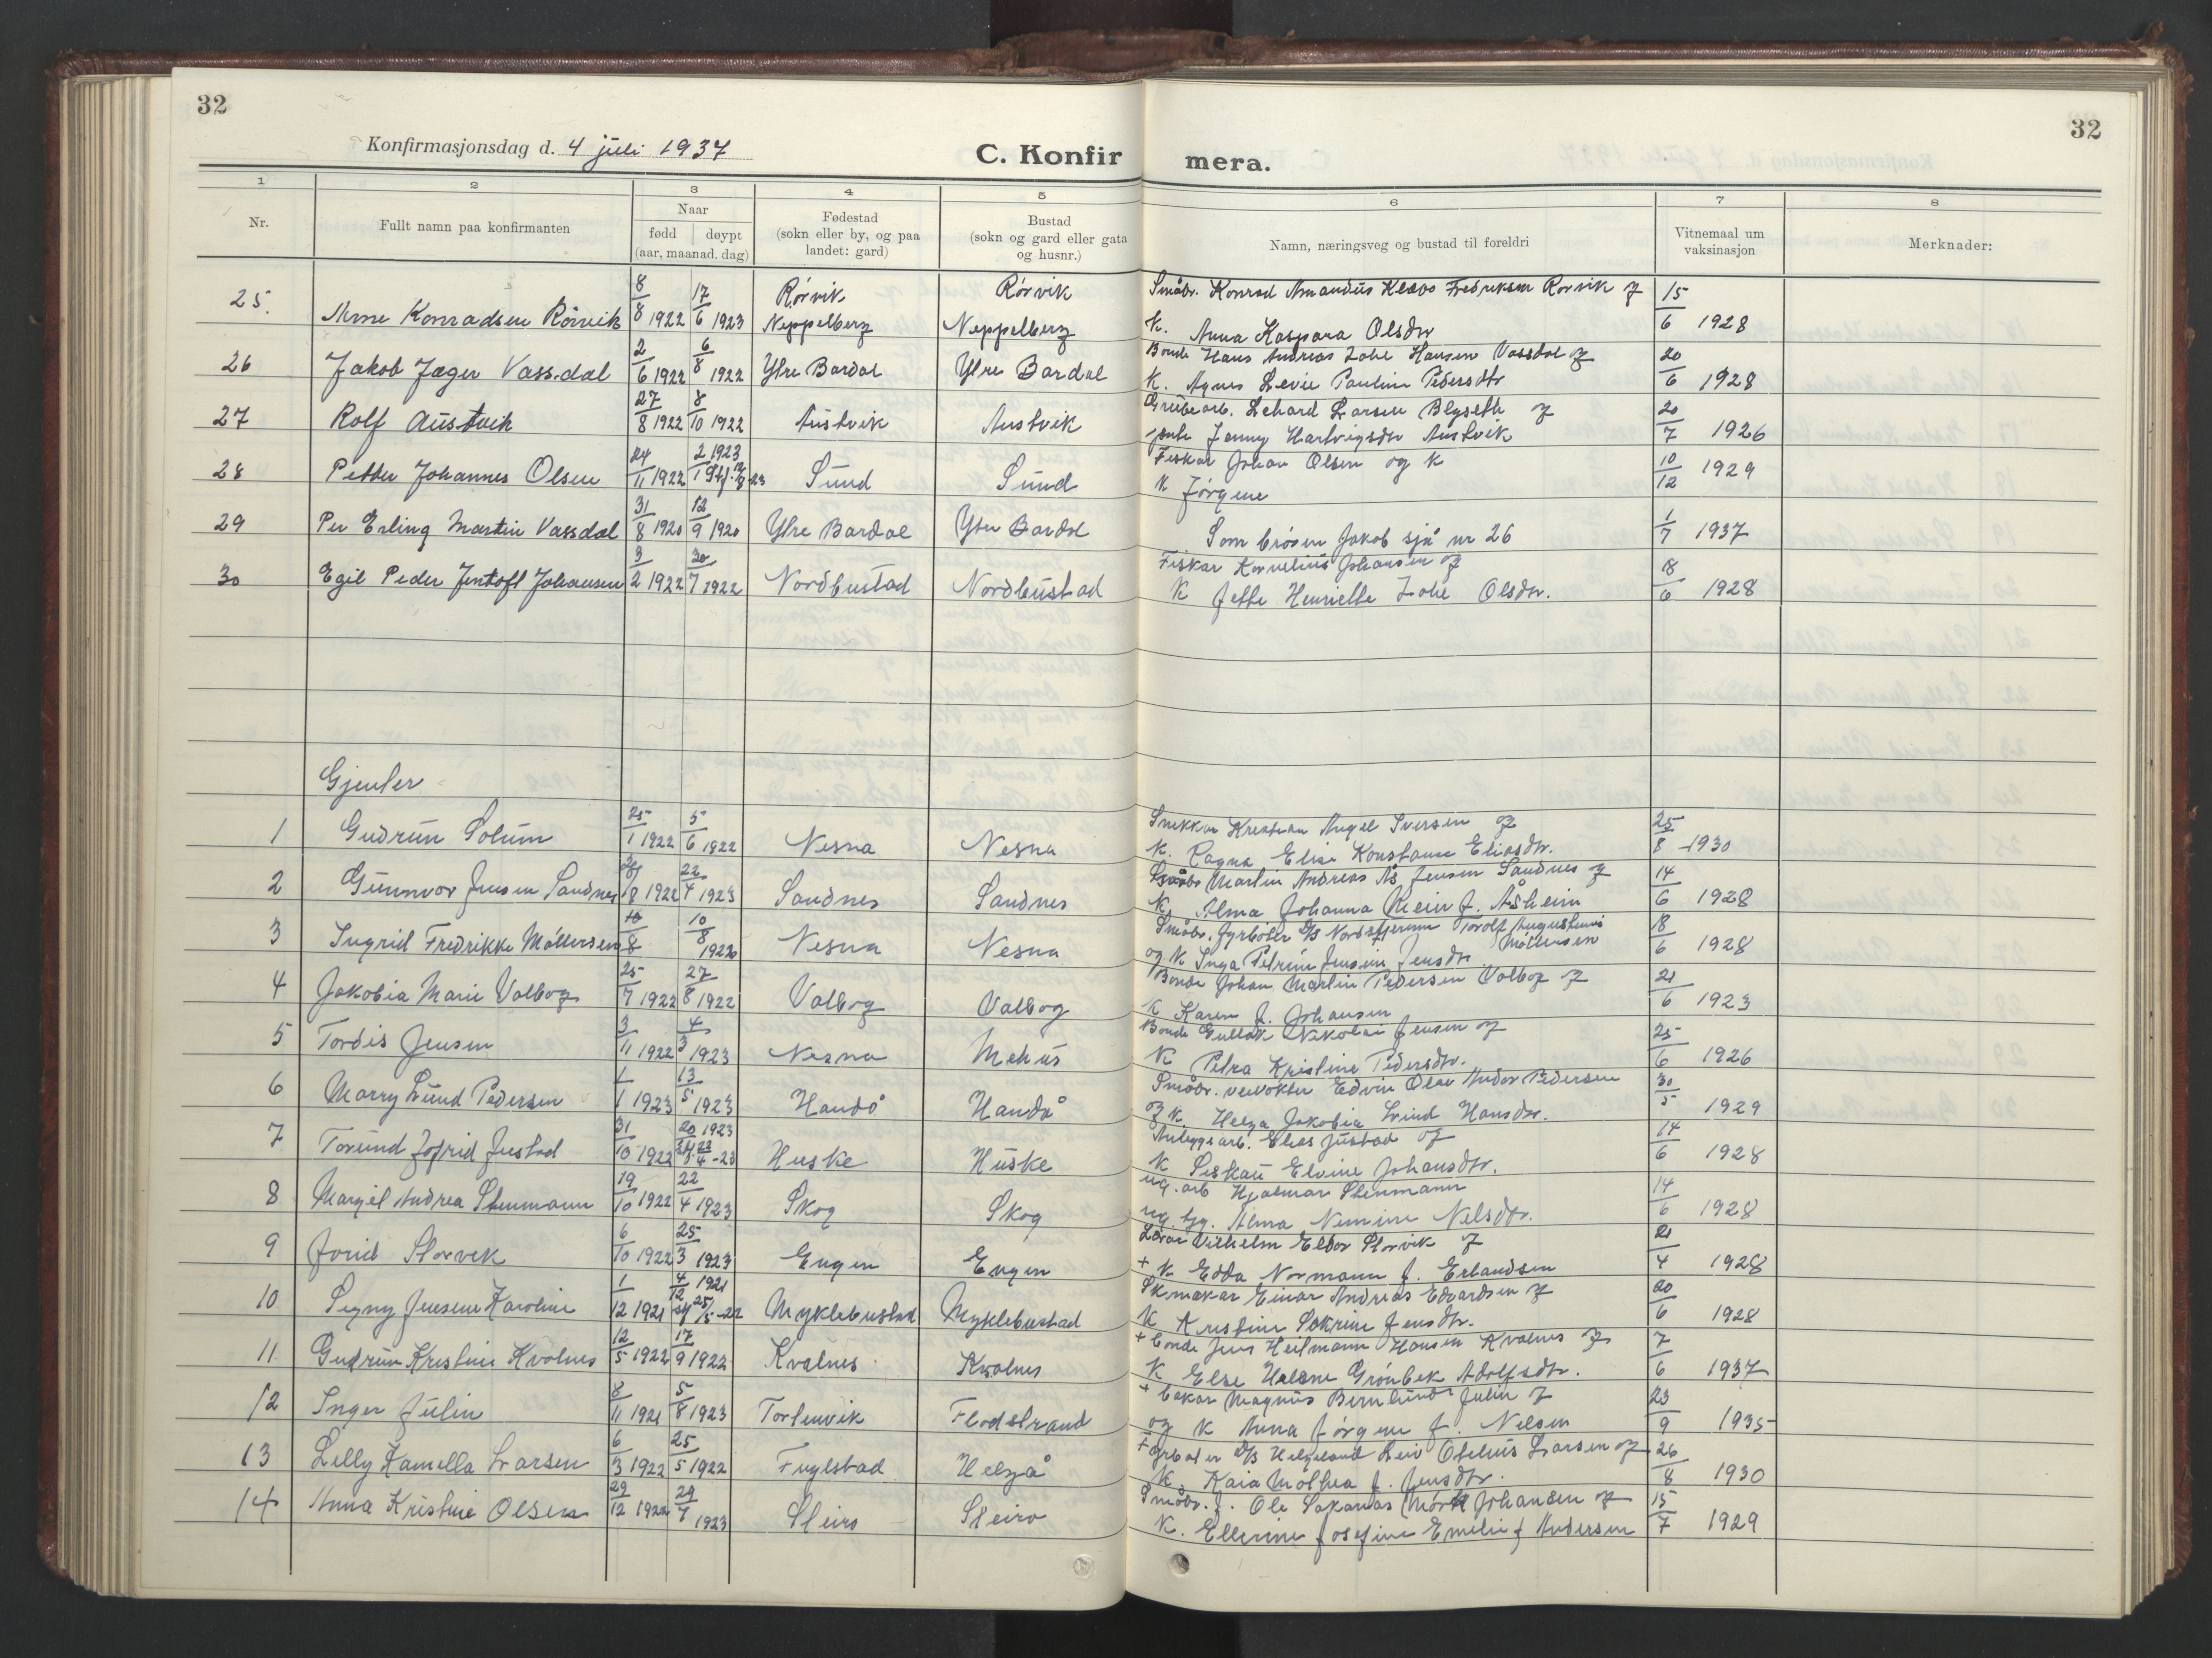 32
32
Konfirmasjonsdag d. 4 juli 1937
C. Konfir mera.
1 2 3 4 5 6 7 8
Nr. Fullt namn paa konfirmanten Naar fødd døypt (aar, maanad. dag) Fødestad (sokn eller by, og paa landet: gard) Bustad (sokn og gard eller gata og husnr.) Namn, næringsveg og bustad til foreldri Vitnemaal um vaksinasjon Merknader:
25. Arne Konradsen Rörvik 8/8 1922 17/6 1923 Rörvik Neppelberg Rörvik Neppelberg Småbr. Konrad Amandus Fredriksen Rorvik og 15/6 1928
k. Anna Kaspara Olsdtr
26 Jakob Jæger Vassdal 2/6 1922 6/8 1922 Ytre Bardal Ytre Bardal Bonde Hans Andreas Hansen Vassdal og 20/6 1928
k. Agnes Levie Pauline Pedersdtr
27 Rolf Austvik 27/8 1922 8/10 1922 Austvik Austvik Grubearb. Larsen Blyseth og 20/7 1926
Jenny Hartvigsdtr Austvik
28 Petter Johannes Olsen 24/11 1922 2/1 1923 Sund Sund Fiskar Johan Olsen og k 10/12 1929
k Jörgine
29 Per Erling Martin Vassdal 31/8 1920 12/9 1920 Ytre Bardal Ytre Bardal Som bròren Jakob sjå nr 26 1/7 1937
30 Egil Peder Jentoft Johansen 3/2 1922 30/7 1922 Nordbustad Nordbustad Fiskar Kornelius Johansen og 18/6 1928
K Jette Henriette Olsdtr.
Gjenter
1 Gudrun Solum 25/1 1922 5/6 1922 Nesna Nesna Snekkar Kristian Angel Iversen og 25/8 1930
k. Ragna Elise Konstanse Eliasdtr.
2 Gunnvor Jensen Sandnes 1922 22/4 1923 Sandnes Sandnes Småbr Martin Andreas Jensen Sandnes og 14/6 1928
K. Alma Johanna Rein f. Åsheim
3 Ingrid Fredrikke Möllersen 10/8 10/8 1922 Nesna Nesna Småbr. fyrböter D/S Nordstjernen Torolf Augustinus Möllersen 18/6 1928
og K Inga Petrine Jensine Jensdtr
4 Jakobia Marie Valbog 25/7 1922 27/8 1922 Valbog Valbog Bonde Johan Martin Pedersen Valbog og 21/6 1923
K Karen f. Johansen
5 Tordis Jensen 3/11 1922 4/3 1923 Nesna Mehus Bonde Gullak Nikolai Jensen og 25/6 1926
K Petra Kristine Pedersdtr.
6 Marry Lund Pedersen 1/1 1923 13/5 1923 Handå Handå Småbr. veivokter Edvin Olav Andor Pedersen 30/5 1929
og k Helga Jakobia Lund Hansdtr.
7 Torund Jofrid Justad 31/10 1922 20 1923 Huske Huske Anleggsarb. Elias Justad og 14/6 1928
K Elvine Johansdtr.
8 Margit Andrea Stenmann 19/10 1922 22/4 1923 Skog Skog ug. arb Hjalmar Stenmann 14/6 1928
ug. tj. Alma Nemine Nelsdtr.
9 Jorid Storvik 6/10 1922 25/3 1923 Engen Engen Lærar Vilhelm Eldor Storvik og 21/4 1928
+ K Edda Normann f. Erlandsen
10 Signy Jensine Karoline 1/12 1921 4/12 1921 Myklebustad Myklebustad Skmakar Einar Andreas Edvardsen og 20/6 1928
K Kristine Sakrine Jensdtr.
11 Gudrun Kristine Kvalnes 12/5 1922 17/9 1922 Kvalnes Kvalnes + bonde Jens Heilmann Hansen Kvalnes og 7/6 1937
K Else Helene Grönbek Adolfsdtr.
12 Inger Julin 8/11 1921 5/8 1923 Tortenvik Flodstrand + bakar Magnus Bernlund Julin og 23/9 1935
og K Anna Jörgine f. Nelsen
13 Lelly Kamella Larsen 6/3 1922 25/5 1922 Fuglstad Helgå Fyrböter D/S Helgeland Leiv Otelius Larsen og 26/8 1930
K. Kaia Mathea f. Jensdtr.
14 Anna Kristine Olsen 29/12 1922 29/7 1923 Steiro Steiro Småbr. f. Ole Sakarias Mörk Johansen og 15/7 1929
K. Ellerine Josefine Emelie f Andersen